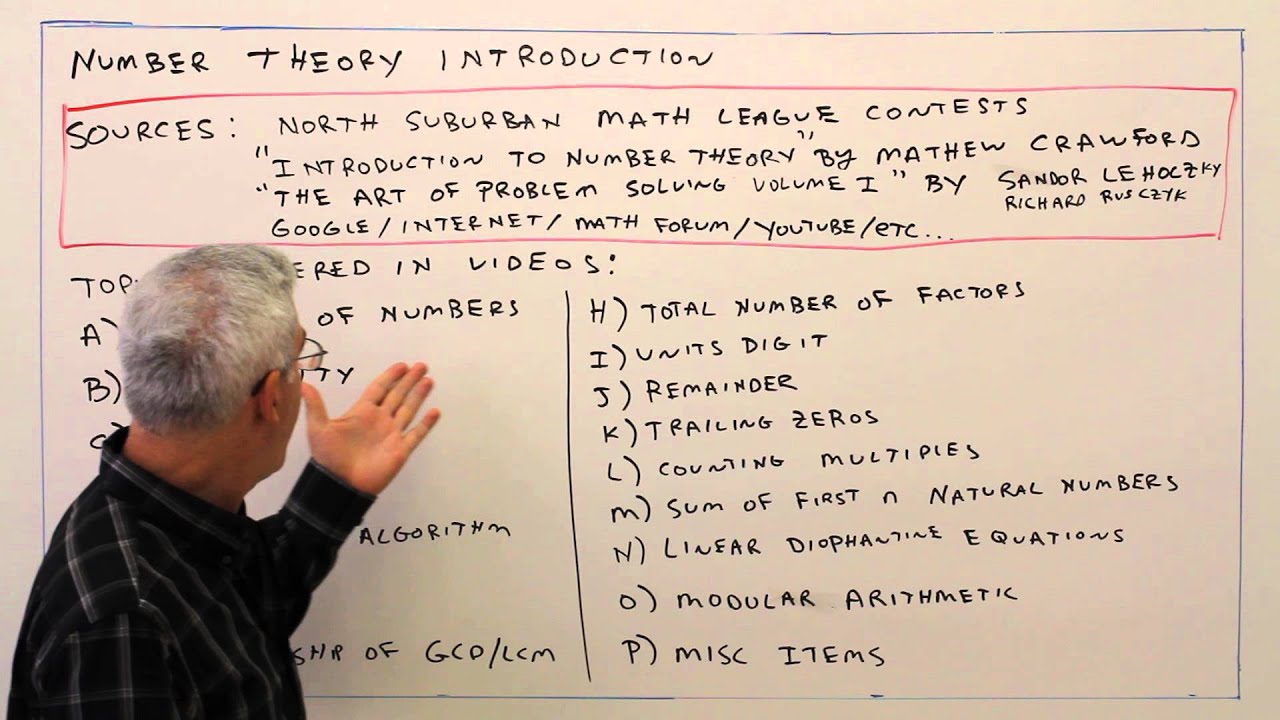 NUMBER THEORY INTRODUCTION
SOURCES: NORTH SUBURBAN MATH LEAGUE CONTESTS
"INTRODUCTION TO NUMBER THEORY" BY MATHEW CRAWFORD
"THE ART OF PROBLEM SOLVING VOLUME I" BY SANDOR LEHOCZKY
RICHARD RUSCZYK
GOOGLE/INTERNET/MATH FORUM/YOUTUBE/ETC...
TOP ERED IN VIDEOS:
A) OF NUMBERS
B) ITY
C)
ALGORITHM
SHIP OF GCD/LCM
H) TOTAL NUMBER OF FACTORS
I) UNITS DIGIT
J) REMAINDER
K) TRAILING ZEROS
L) COUNTING MULTIPLES
M) SUM OF FIRST n NATURAL NUMBERS
N) LINEAR DIOPHANTINE EQUATIONS
O) MODULAR ARITHMETIC
P) MISC ITEMS